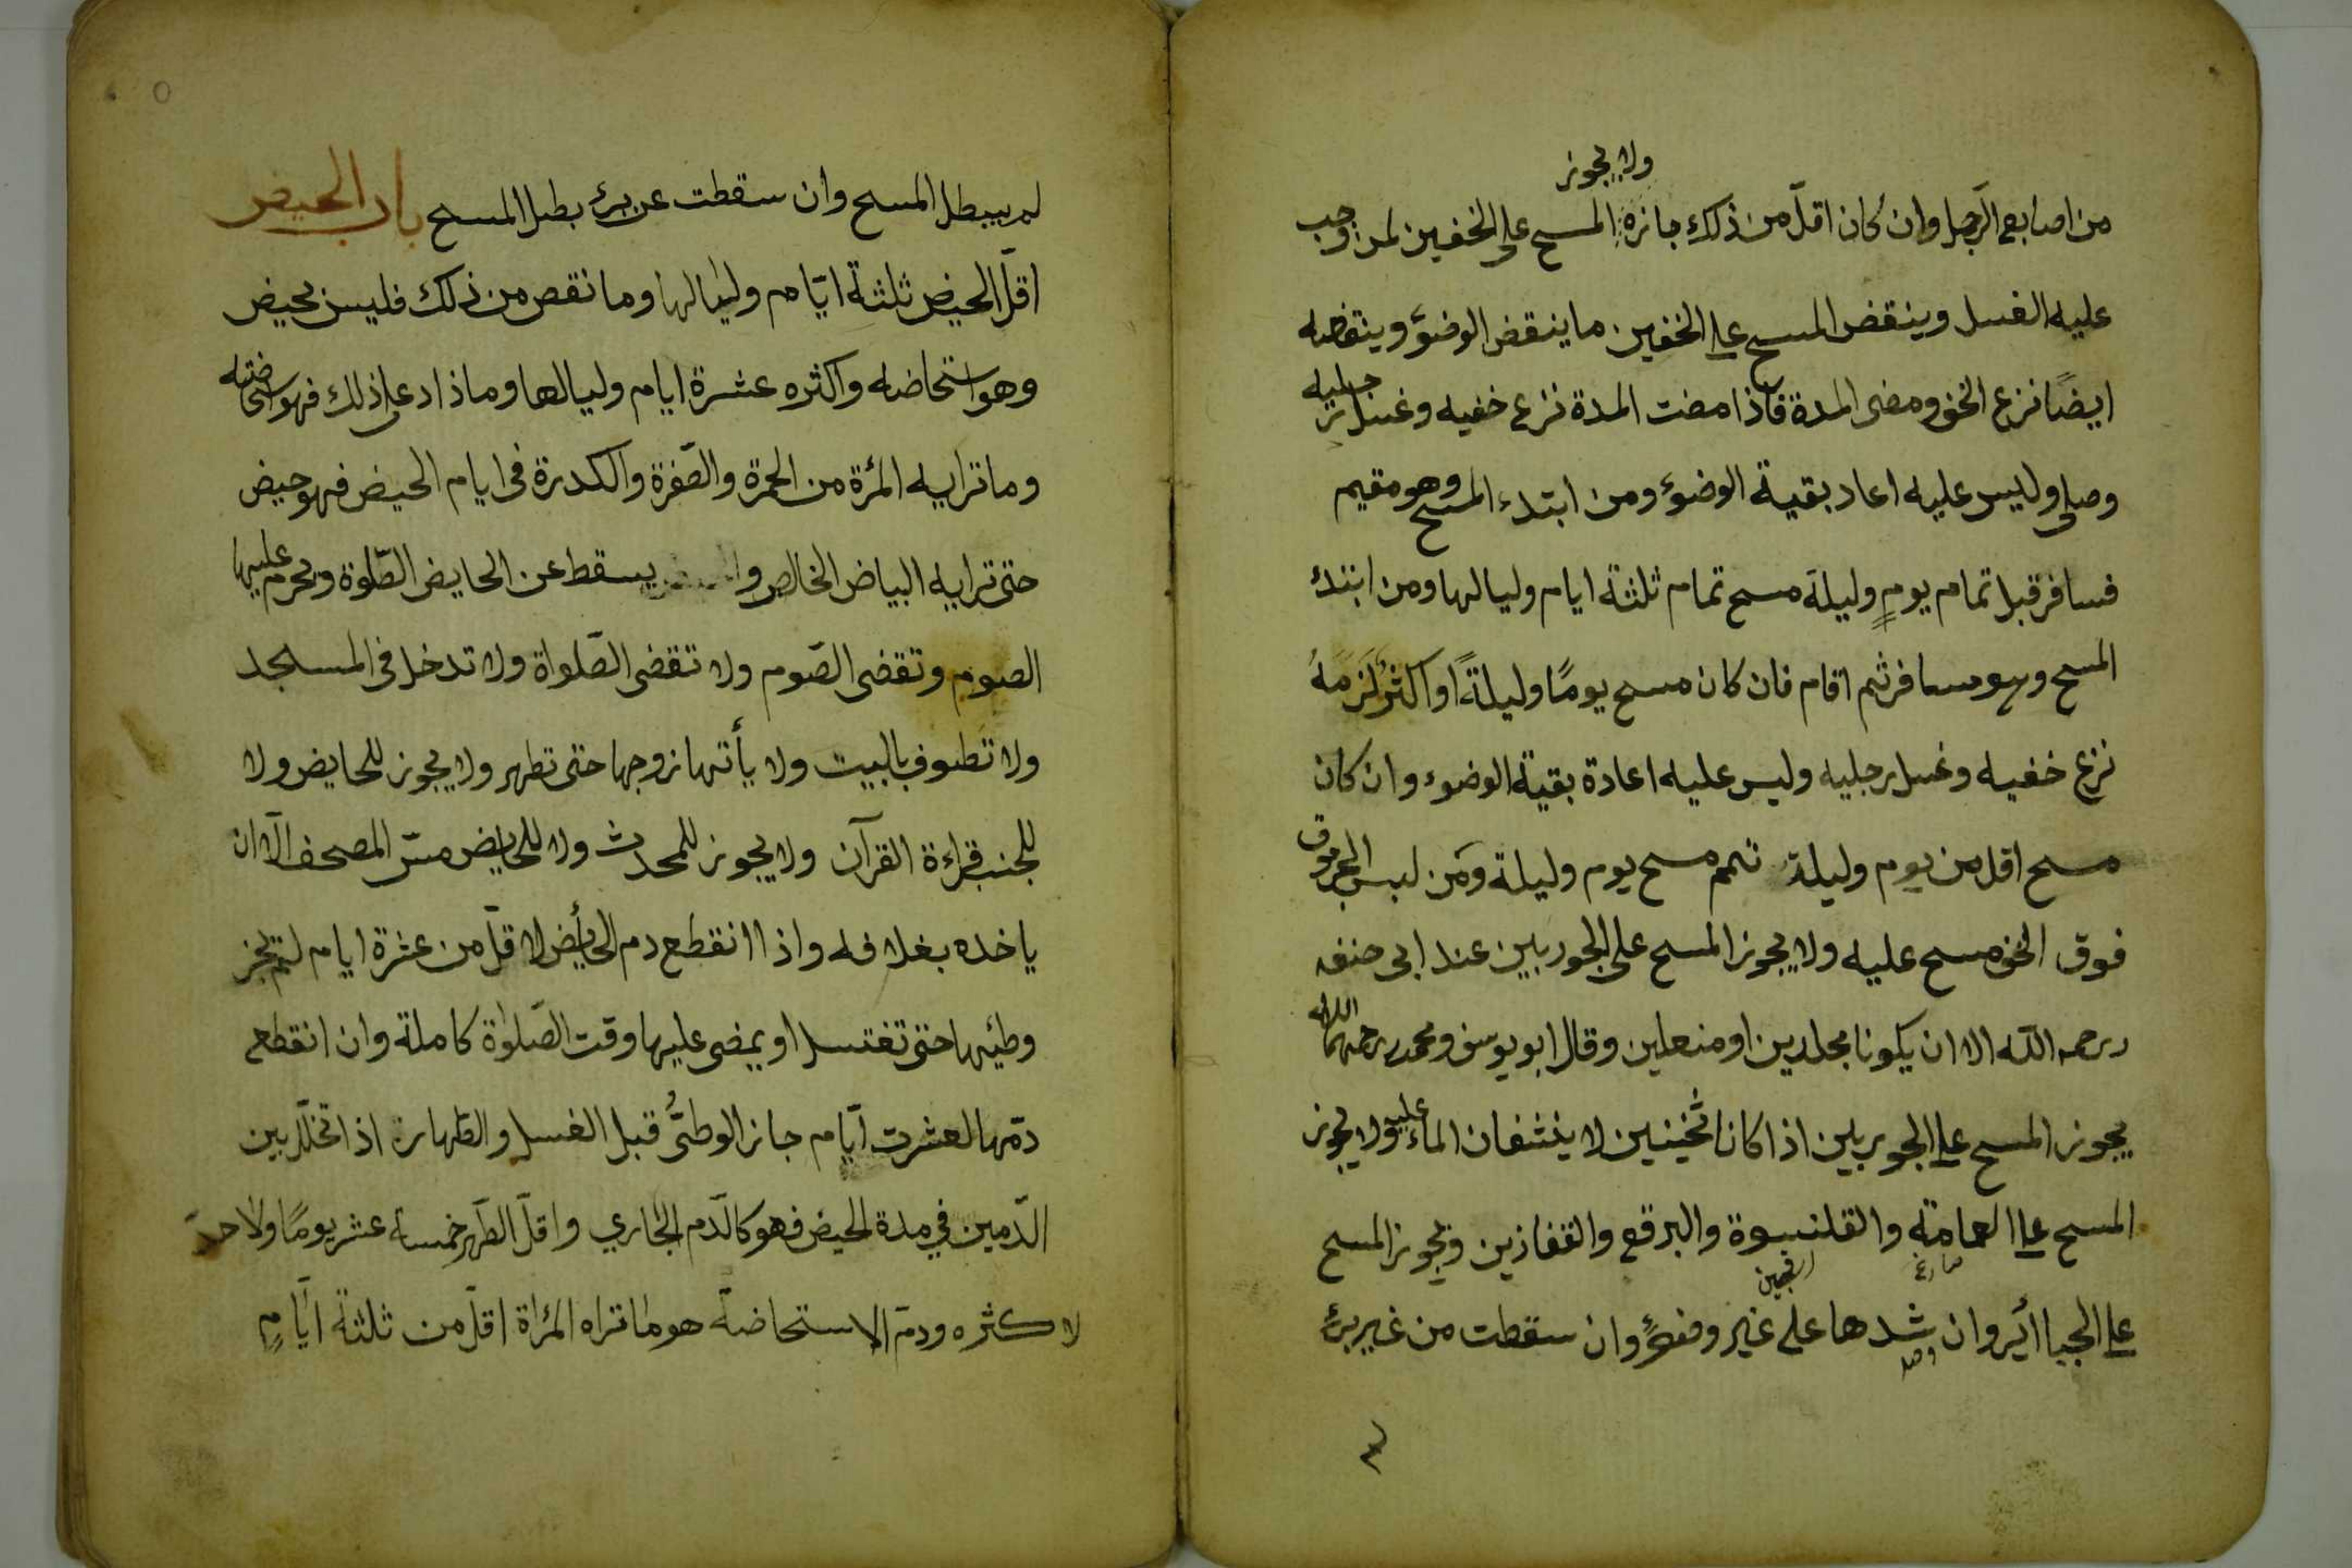 ولا يجوز
من اصابع الرّجل وان كان اقلّ من ذلك جاز المسح على الخفين لمن وجب
عليه الغسل وينقض المسح على الخفين ما ينقض الوضوء وينقضه
ايضًا نزع الخف ومضى المدة فاذا مضت المدة نزع خفيه وغسل رجليه
وصلى وليس عليه اعاد بقية الوضوء ومن ابتدء المسح وهو مقيم
فسافر قبل تمام يومٍ وليلة مسح تمام ثلثة ايام ولياليها ومن ابتدئ
المسح وهو مسافر ثم اقام فان كان مسح يومًا وليلةً او اكثرُ لَزِمَهُ
نزع خفيه وغسل رجليه وليس عليه اعادة بقية الوضوء وان كان
مسح اقل من يوم وليلة تمم مسح يوم وليلة ومَن لبس الجرموق
فوق الخف مسح عليه ولا يجوز المسح على الجوربين عند ابى حنفه
رحمه اللّه الا ان يكونا مجلدين او منعلين وقال ابو يوسف ومحمد رحمهما الله
يجوز المسح على الجوربين اذا كانا ثخينين لا ينشفان الماء عليه ولا يجوز
المسح على العمامة والقلنسوة والبرقع والقفازين ويجوز المسح
على الجباائر وان شدها على غير وضوءٍ وان سقطت من غير برئٍ
لم يبطل المسح وان سقطت عن برئ بطل المسح باب الحيض
اقلّ الحيض ثلثة ايّام ولياليها وما نقص من ذلك فليس بحيض
وهو استحاضه واكثره عشرة ايام ولياليها وماذاد على ذلك فهو استحاضته
وما ترايه المرئة من الحمرة والصّفرة والكدرة فى ايام الحيض فهو حيض
حتى ترايه البياض الخالص و يسقط عن الحايض الصّلوة ويحرم عليها
الصوم وتقضى الصّوم ولا تقضى الصّلواة ولا تدخل فى المسجد
ولا تطوف بالبيت ولا يأتها زوجها حتى تطهر ولا يجوز للحايض ولا
للجنب قراءة القرآن ولا يجوز للمحدث ولا للحايض مسّ المصحف الّا ان
ياخده بغلافه واذا انقطع دم الحائض لاقلّ من عشرة ايام لم يجز
وطئها حتى تغتسل او يمضى عليها وقت الصّلوٰة كاملة وان انقطع
دمّها لعشرت ايّام جاز الوطئُ قبل الغسل والطّهارة اذا تخلّل بين
الدّمين في مدة الحيض فهو كالدّم الجاري واقلّ الطّهر خمسة عشر يومًا ولا حدّ
لاكثره ودمّ الاستحاضة هو ما تراه المرٔاة اقلّ من ثلثة ايّامٍ